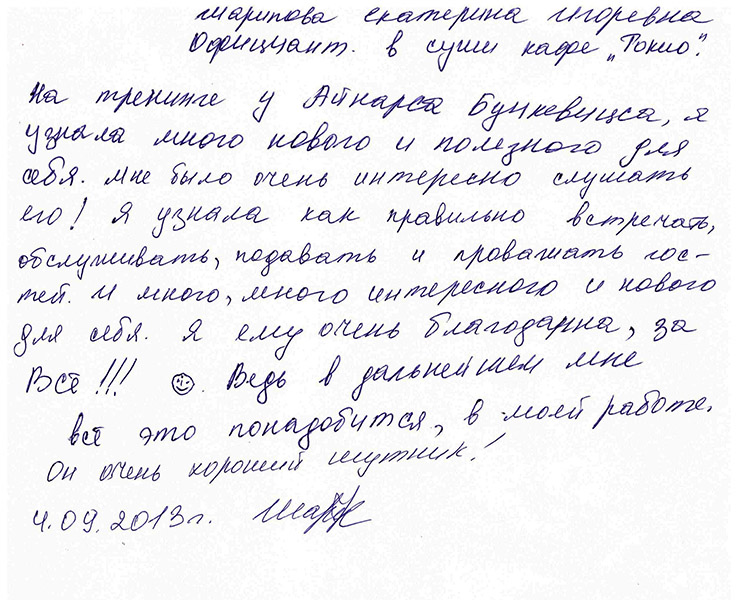 Шарипова Екатерина Игоревна
Официант. в суши кафе „Токио".
На тренинге у Айнарса Бункевицса, я
узнала много нового и полезного для
себя. Мне было очень интересно слушать
его! Я узнала как правильно встречать,
обслуживать, подавать и проважать гос-
тей. И много, много интересного и нового
для себя. Я ему очень благодарна, за
Всё!!! ☺. Ведь в дальнейшем мне
всё это понадобится, в моей работе.
Он очень хороший шутник!
4.09.2013г.